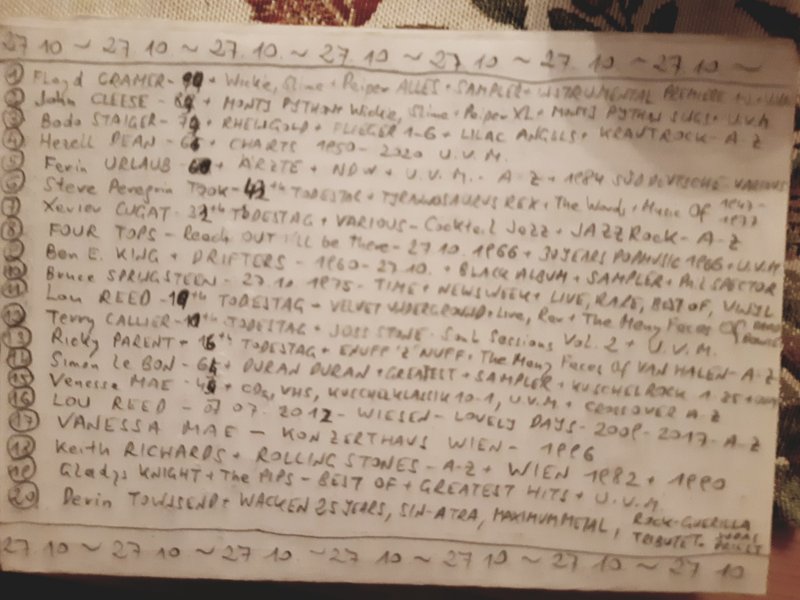 27.10 ~ 27.10. ~ 27.10. ~ 27.10. ~ 27.10. ~ 27.10. ~ 27.10 ~
1 Floyd CRAMER - + Wickie, Slime + Paiper ALLES + SAMPLER + INSTRUMENTAL PREMIERE
2 John CLEESE - + MONTY PYTHON Wickie, Slime + Paiper XL + MONTY PYTHON SINGS + U.V.M
3 Bodo STAIGER - + RHEINGOLD + FLIEGER 1-6 + LILAC ANGELS + KRAUTROCK - A-Z
Hazell DEAN - + CHARTS 1950 - 2020 U.V.M.
Farin URLAUB + ÄRZTE + NDW + U.V.M. - A-Z + 1984 SÜDDEUTSCHE VARIOUS
6 Steve Peregrin TOOK - 42th TODESTAG + TYRANNOSAURUS REX + The Words + Music OF 1947 - 1977
7 Xavier CUGAT - 32th TODESTAG + VARIOUS - Cocktail Jazz + JAZZ Rock - A-Z
8 FOUR TOPS - Reach OUT I'll be There - 27.10.1966 + 30 YEARS POPMUSIC 1966 + U.V.M
Ben E. KING + DRIFTERS - 1960 - 27.10. + BLACK ALBUM + SAMPLER + Phil SPECTOR
Bruce SPRINGSTEEN - 27.10.1975 - TIME + NEWSWEEK + LIVE, RARE, BEST OF, VINYL
Lou REED - th TODESTAG - VELVET UNDERGROUND + Live, Rar + The Many Faces OF DAVID BOWIE
Terry CALLIER - th TODESTAG + JOSS STONE - Soul Sessions Vol. 2 + U.V.M.
13 Ricky PARENT + th TODESTAG + ENUFF 'Z' NUFF + The Many Faces OF VAN HALEN - A-Z
Simon Le BON - + DURAN DURAN + GREATEST + SAMPLER + KUSCHELROCK
Vanessa MAE - + CDs, VHS, KUSCHELKLASSIK 10-1, U.V.M + CROSSOVER A-Z
16 LOU REED - 07.07.2012 - WIESEN - LOVELY DAYS - 2009 - 2017 - A-Z
17 VANESSA MAE - KONZERTHAUS WIEN - 1996
18 Keith RICHARDS + ROLLING STONES - A-Z + WIEN 1982 + 1990
19 Gladys KNIGHT + The PIPS - BEST OF + GREATEST HITS + U.V.M.
20 Devin TOWNSEND + WACKEN 25 YEARS, SIN-ATRA, MAXIMUM METAL, ROCK-GUERILLA TRIBUTE To JUDAS PRIEST
27.10 ~ 27.10 ~ 27.10 ~ 27.10 ~ 27.10 ~ 27.10 ~ 27.10